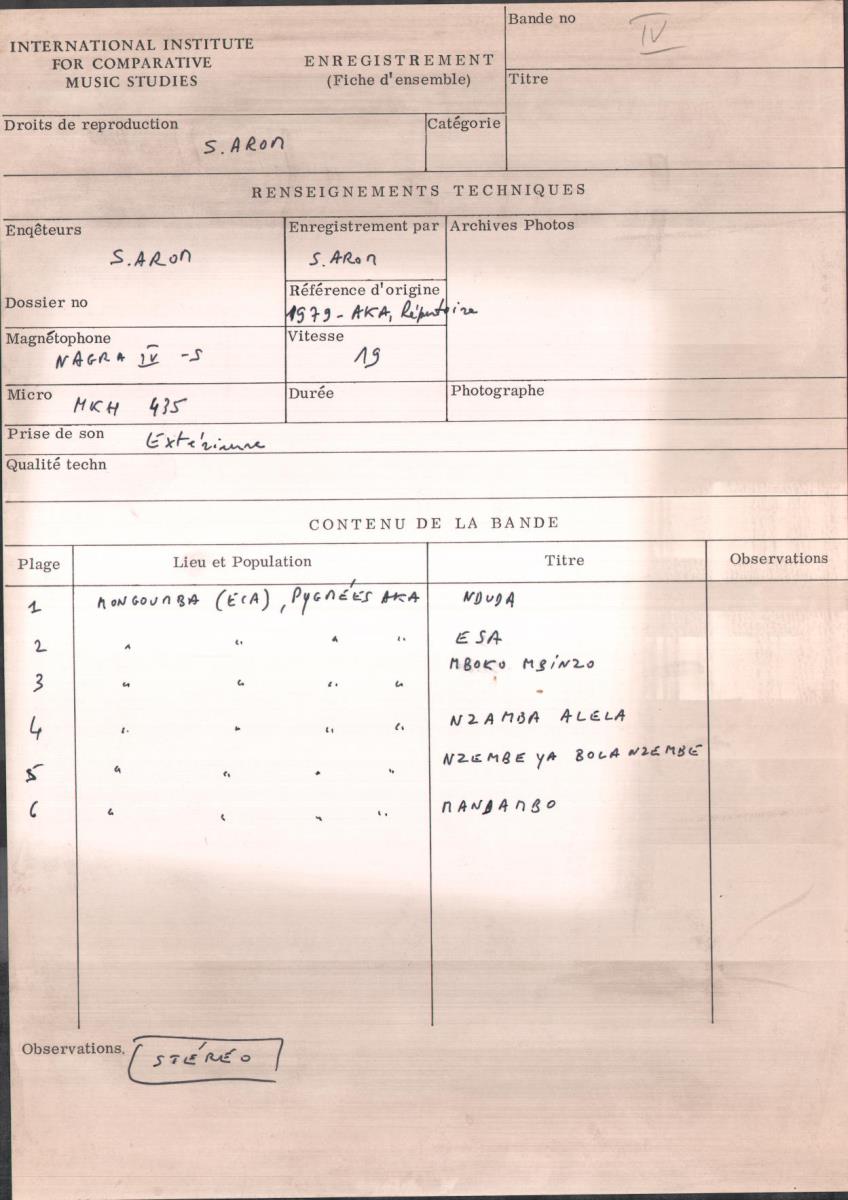 INTERNATIONAL INSTITUTE
FOR COMPARATIVE
MUSIC STUDIES
ENREGISTREMENT
(Fiche d'ensemble)
Bande no IV
Titre
Droits de reproduction
S. AROM
Catégorie
RENSEIGNEMENTS TECHNIQUES
Enqêteurs
S. AROM
Enregistrement par
S. AROM
Archives Photos
Dossier no
Référence d'origine
1979 - AKA, Répertoire
Magnétophone
NAGRA IV -S
Vitesse
19
Micro
MKH 435
Durée
Photographe
Prise de son
Extérieure
Qualité techn
CONTENU DE LA BANDE
Plage Lieu et Population Titre Observations
1 MONGOUMBA (ECA), PYGMÉES AKA NDUDA
2 " " " " ESA
3 " " " " MBOKO MBINZO
4 " " " " NZAMBA ALELA
5 " " " " NZEMBE YA BOLA NZEMBE
6 " " " " MANDAMBO
Observations. STÉRÉO